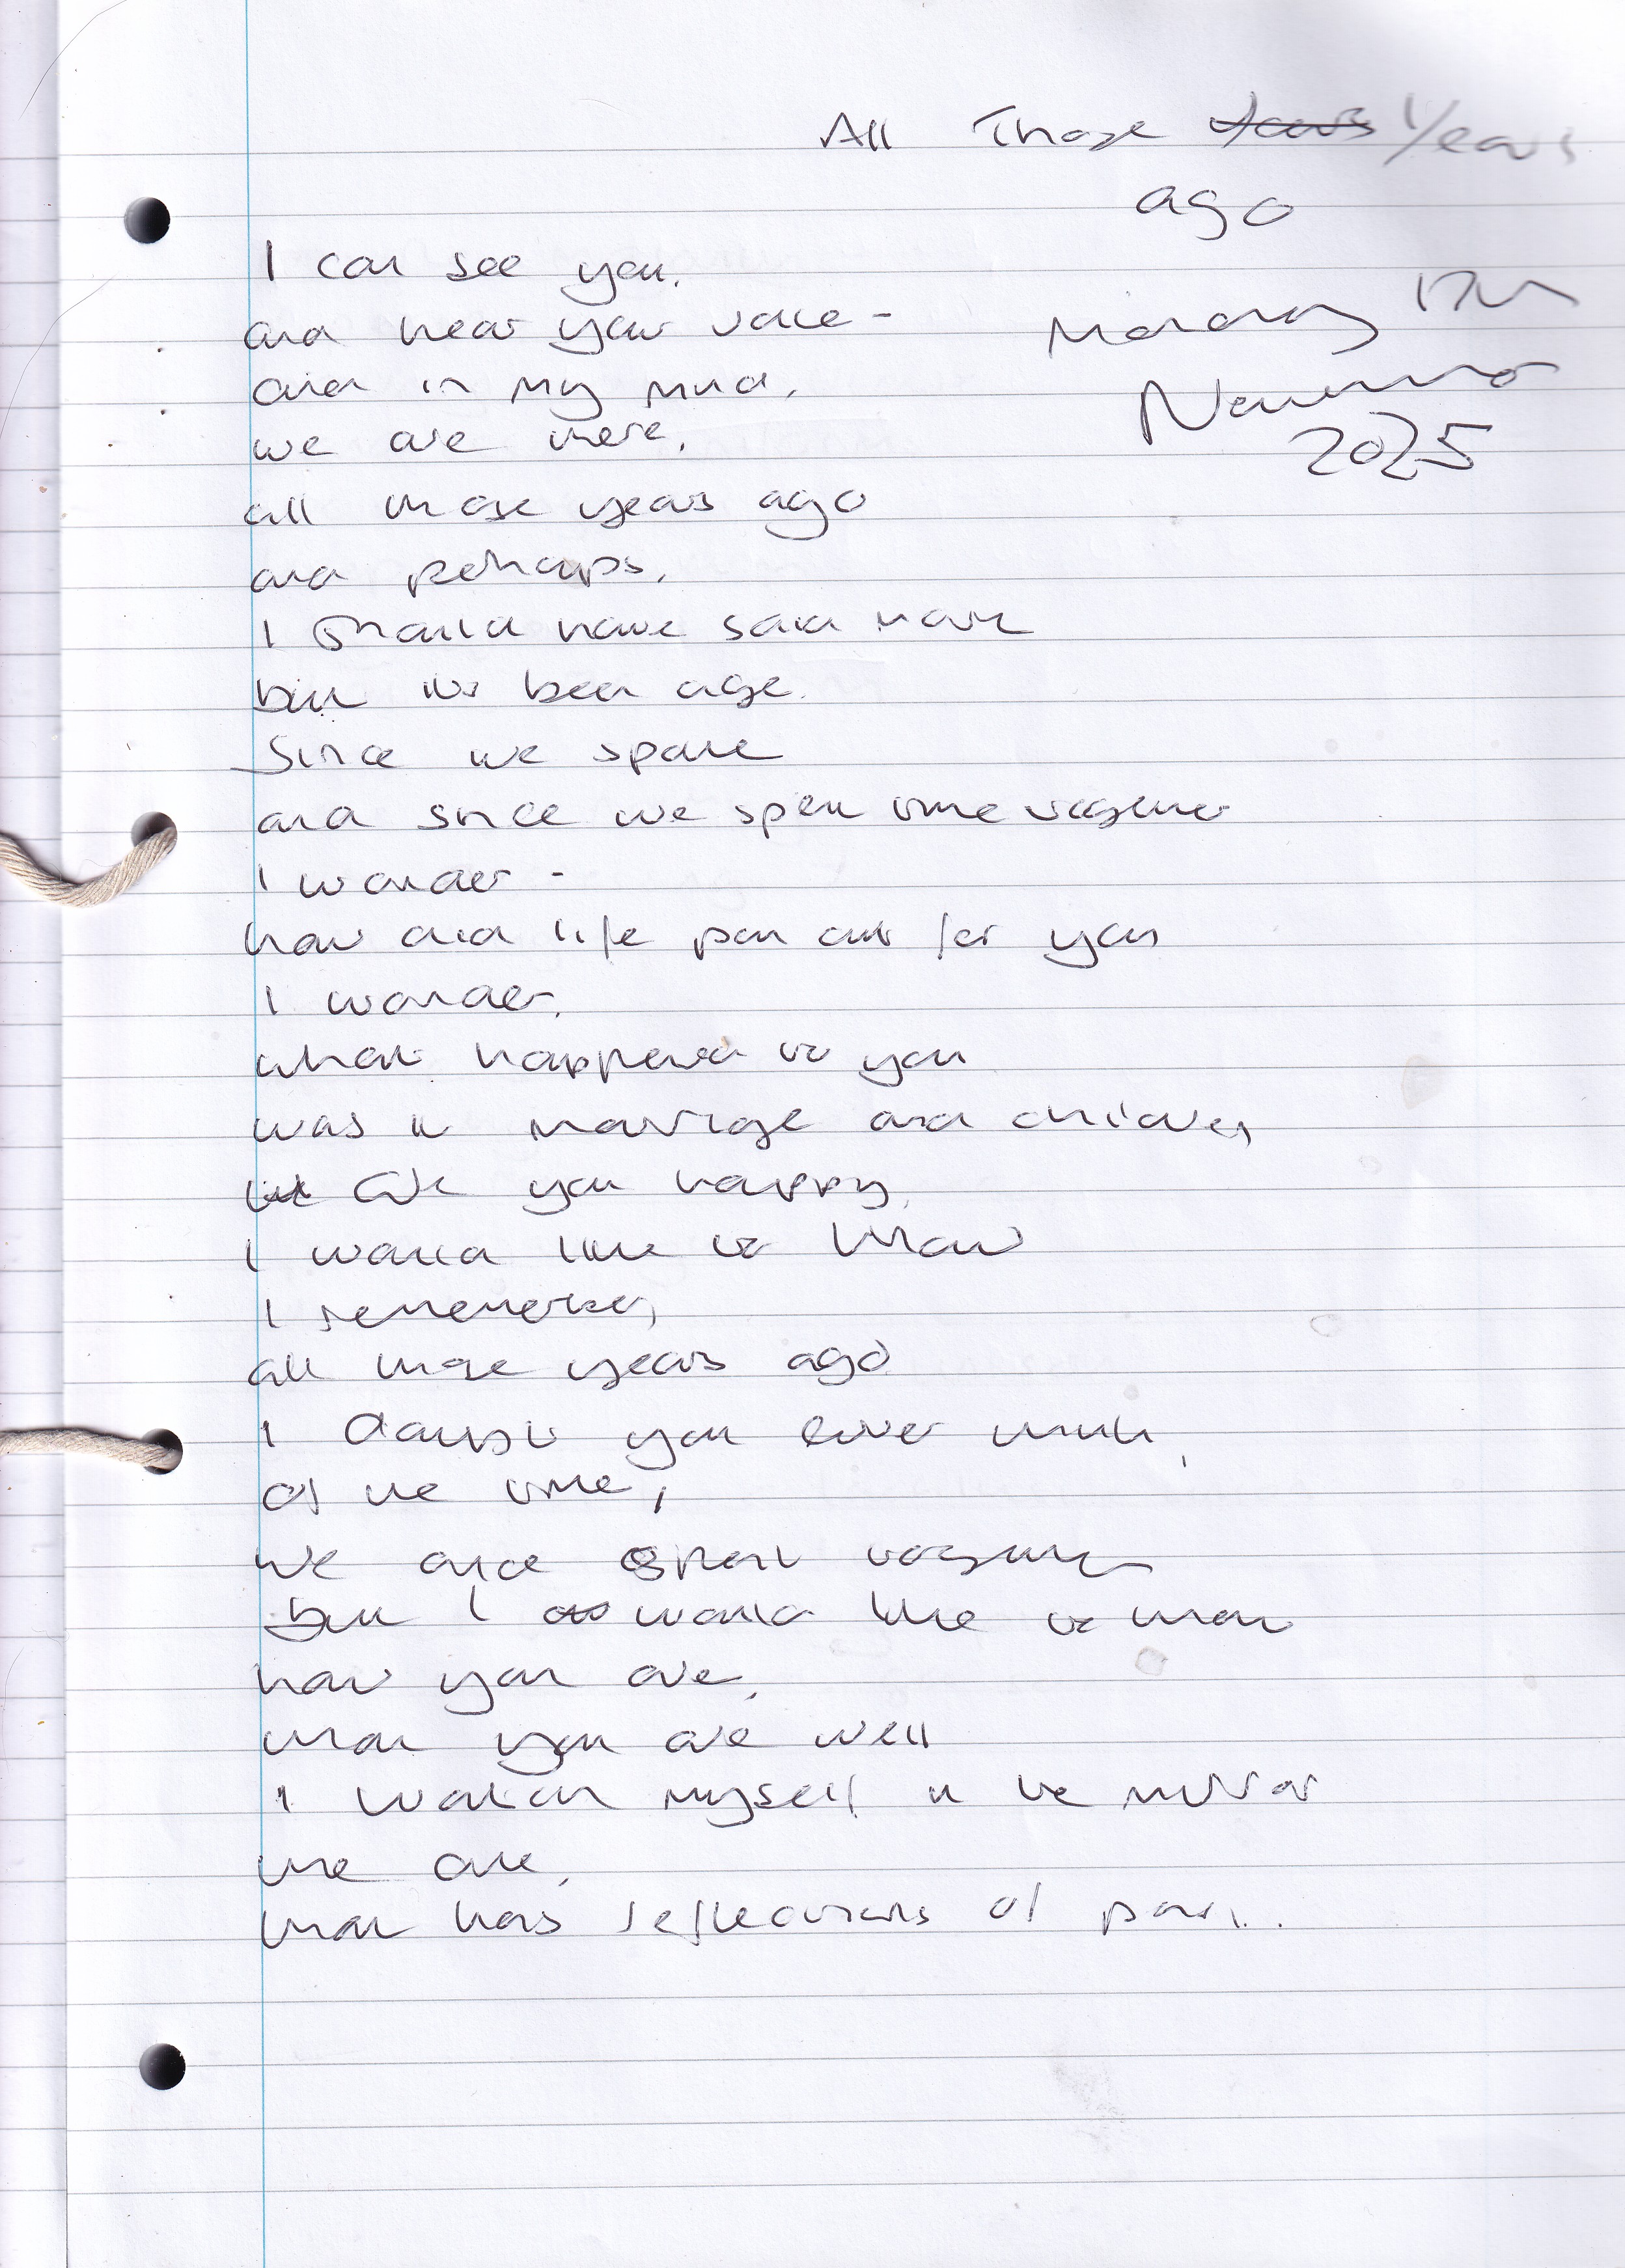 All Those Years Years
ago
Monday 17th
November
2025
I can see you,
and hear your voice -
and in my mind,
we are there,
all those years ago
and perhaps,
I should have said more
but its been age.
Since we spoke
and since we spent time together
I wonder -
how did life pan out for you
I wonder,
what happened to you
was it marriage and children,
are you happy,
I would like to know
I remember,
all those years ago
I doubt you ever think,
of the time,
we once spent together
but I would like to know
how you are,
that you are well
I watch myself in the mirror
the one,
that has reflections of past..